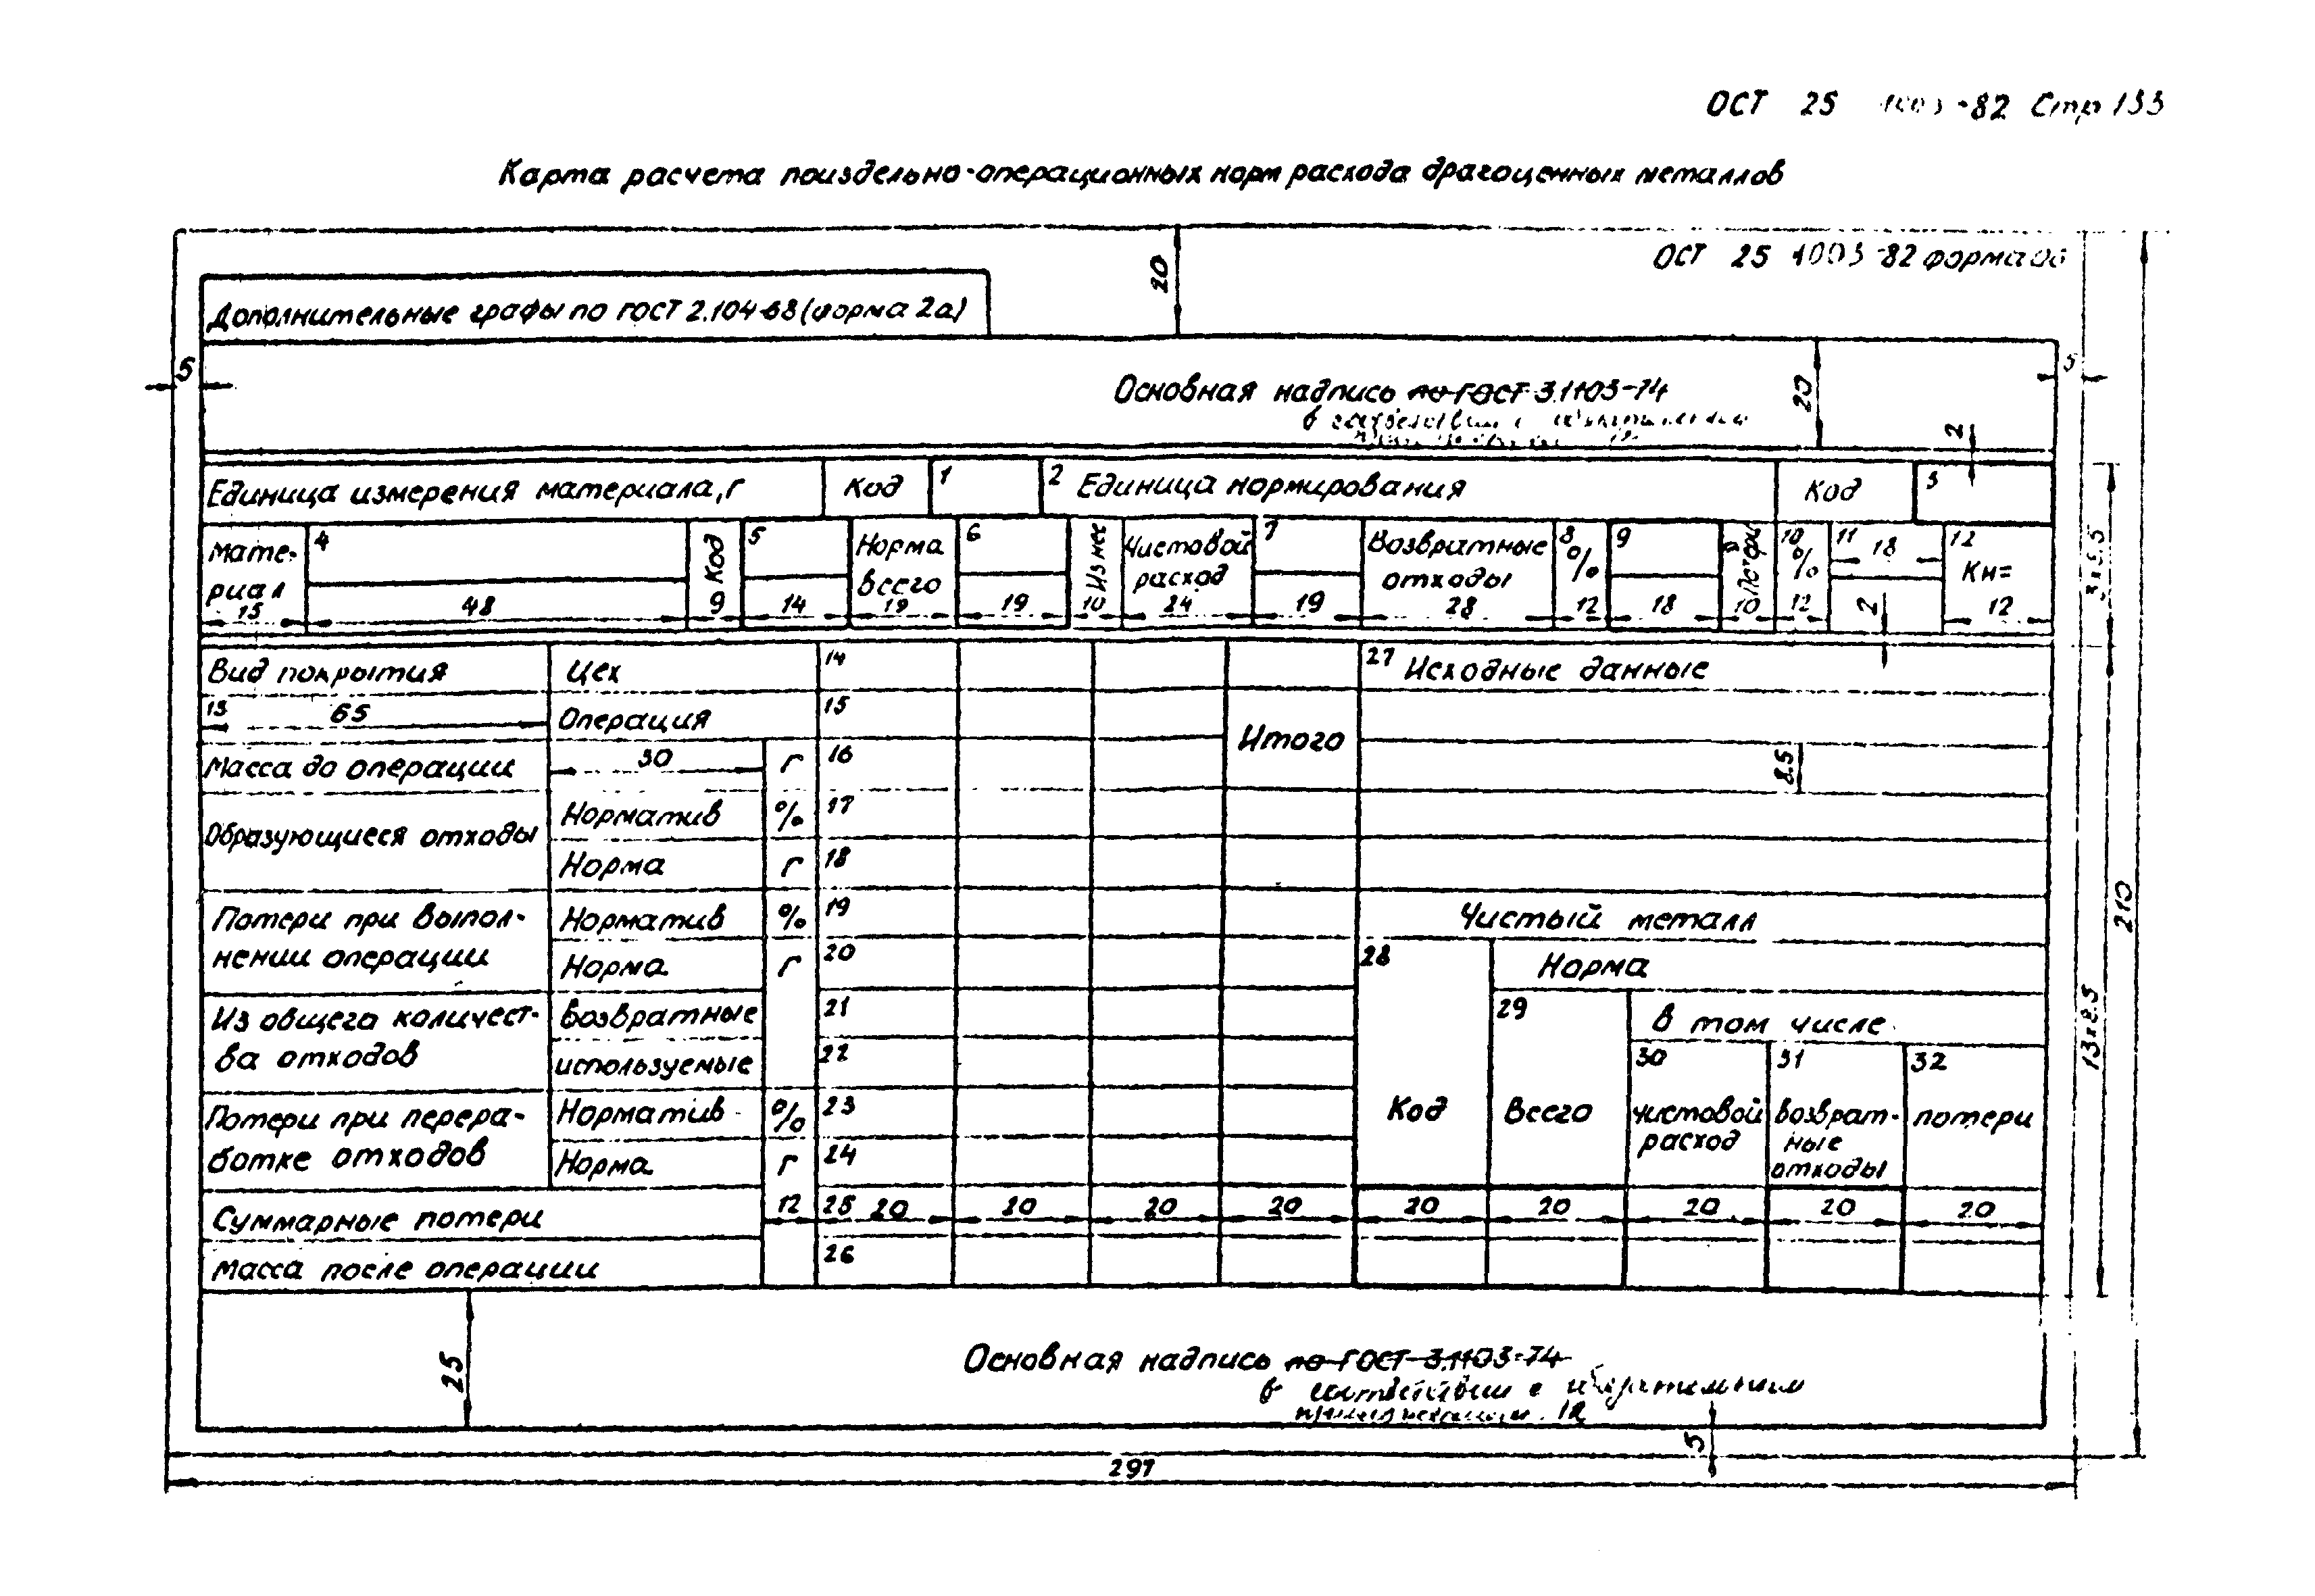 ОСТ 25 1003-82 Стр 133
Карта расчета поиздельно-операционных норм расхода драгоценных металлов
ОСТ 25 1003-82 форма
20
Дополнительные графы по ГОСТ 2.104-68 (форма 2а)
5
5
Основная надпись по ГОСТ 3.1103-74
20
в с
2
Единица измерения материала, г
Код
1
2 Единица нормирования
Код
3
Мате-
риал
15
4
48
Код
9
5
14
Норма
всего
19
6
19
Из нее
10
Чистовой
расход
24
7
19
Возвратные
отходы
28
8
%
12
9
18
Потери
10
10
%
12
11
18
2
12
Кн=
12
3х8.5
Вид покрытия
Цех
14
27 Исходные данные
13
65
Операция
15
Итого
Масса до операции
30
г
16
8.5
Образующиеся отходы
Норматив
%
17
Норма
г
18
Потери при выпол-
нении операции
Норматив
%
19
Чистый металл
Норма
г
20
28
Норма
Из общего количест-
ва отходов
Возвратные
21
29
в том числе
используемые
22
30
31
32
Потери при перера-
ботке отходов
Норматив
%
23
Код
Всего
чистовой
расход
возврат-
ные
отходы
потери
Норма
г
24
Суммарные потери
12
25
20
20
20
20
20
20
20
20
20
Масса после операции
26
13х8.5
210
25
Основная надпись по ГОСТ 3.1103-74
в соответствии с обязательным
приложением 12
5
297